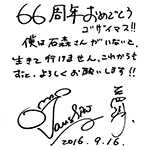 66周年おめでとう
ゴザイマス!!
僕は石森さんがいないと、
生きて行けません。これからも
ずっと、よろしくお願いします!!
2016.9.16.